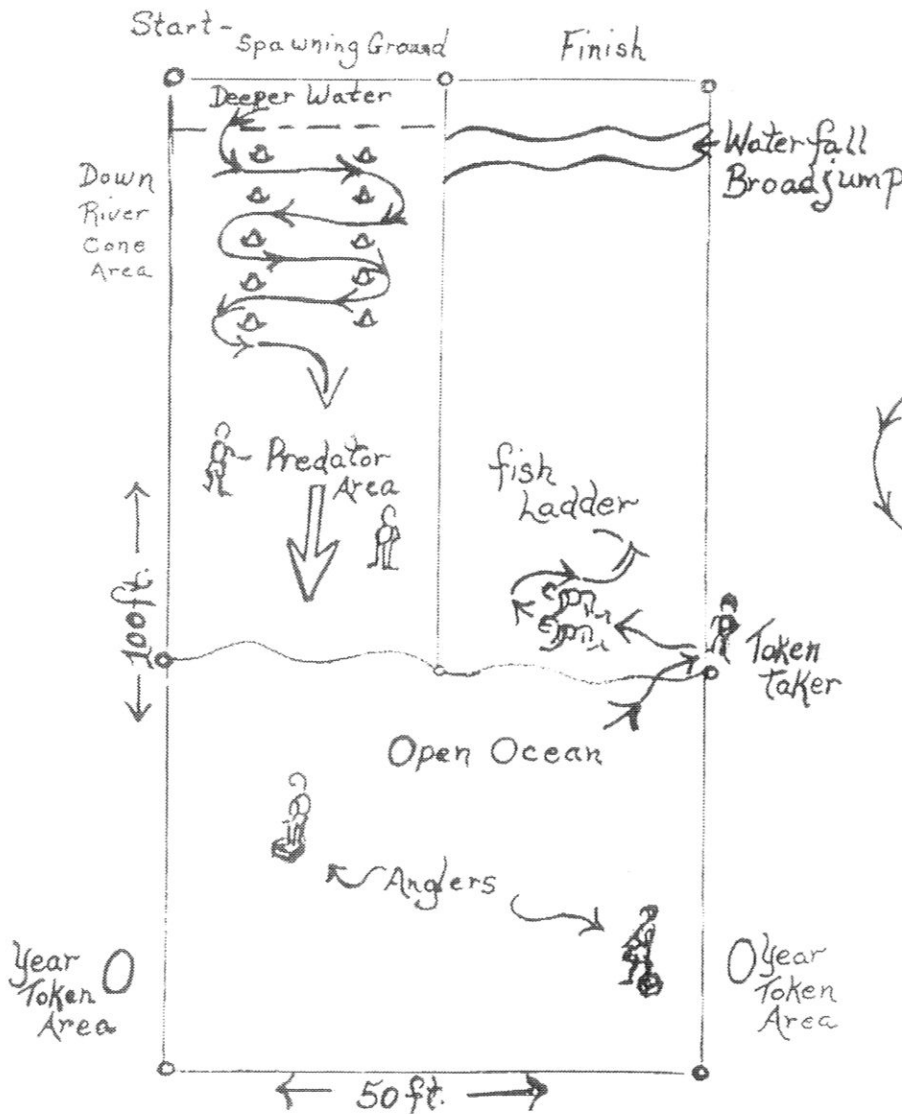 Start-
Spawning Ground
Finish
Deeper Water
Waterfall
Broadjump
Down
River
Cone
Area
Predator
Area
fish
Ladder
100ft.
Token
Taker
Open Ocean
Anglers
Year
Token
Area
Year
Token
Area
50ft.